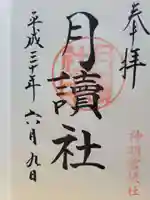 奉拝
月讀社
平成三十年六月九日